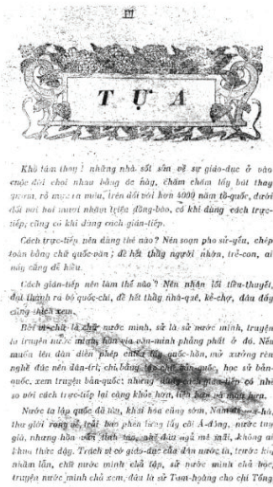 TỰA
Khó lám thay! những nhà sốt sắn về sự giáo-dục ở vào
cuộc đời chơi nhau bằng óc này, chăm chăm lấy bút thay
gươm, rỏ mực ra máu, trên đối với hơn 4000 năm tổ-quốc, dưới
đối với hai mươi nhiệm triệu đồng-bào, có khi dùng cách trực-
tiếp; cũng có khi dùng cách gián-tiếp.
Cách trực-tiếp nên dùng thế nào? Nên soạn pho sử-gẫu, chép
toàn bằng chữ quốc-văn; để hết thảy người nhớn, trẻ-con, ai
nấy cũng dễ hiểu.
Cách gián-tiếp nên làm thế nào? Nên nhận lối tiểu-thuyết,
đại thành ra bộ quốc-chí, để hết thảy nhà-quê, kẻ-chợ, đâu đấy
cũng thích xem.
Bởi vì chữ là chữ nước mình, sử là sử nước mình, truyện
là truyện nước mình, hồn của văn-minh phảng phất ở đó. Nếu
muốn lên đàn diễn phép chiêu lấy quốc-hồn, mở xưởng rèn
nghề đúc nên dân-trí; chỉ bằng tập chữ bản-quốc, học sử bản-
quốc, xem truyện bản-quốc; nhưng dùng cách gián-tiếp có nhẽ
so với cách trực-tiếp lại càng khéo hơn, tiện hơn và mau hơn.
Nước ta lập quốc đã lâu, khai hóa cũng sớm, Nam
thư giới rộng rẽ, trải bản phiên lừng lẫy cõi Á-đông, nước tuy
già, nhưng hồn vẫn tỉnh táo, chỉ đứa ngủ mê mải, không ai
khua thức dậy. Trách vì cớ giáo-dục của dân nước ta, trước kia
nhầm lẫn, chữ nước mình chả tập, sử nước mình chả học,
truyện nước mình chả xem, đứa là sử Tuân-hoàng cho chí Tống